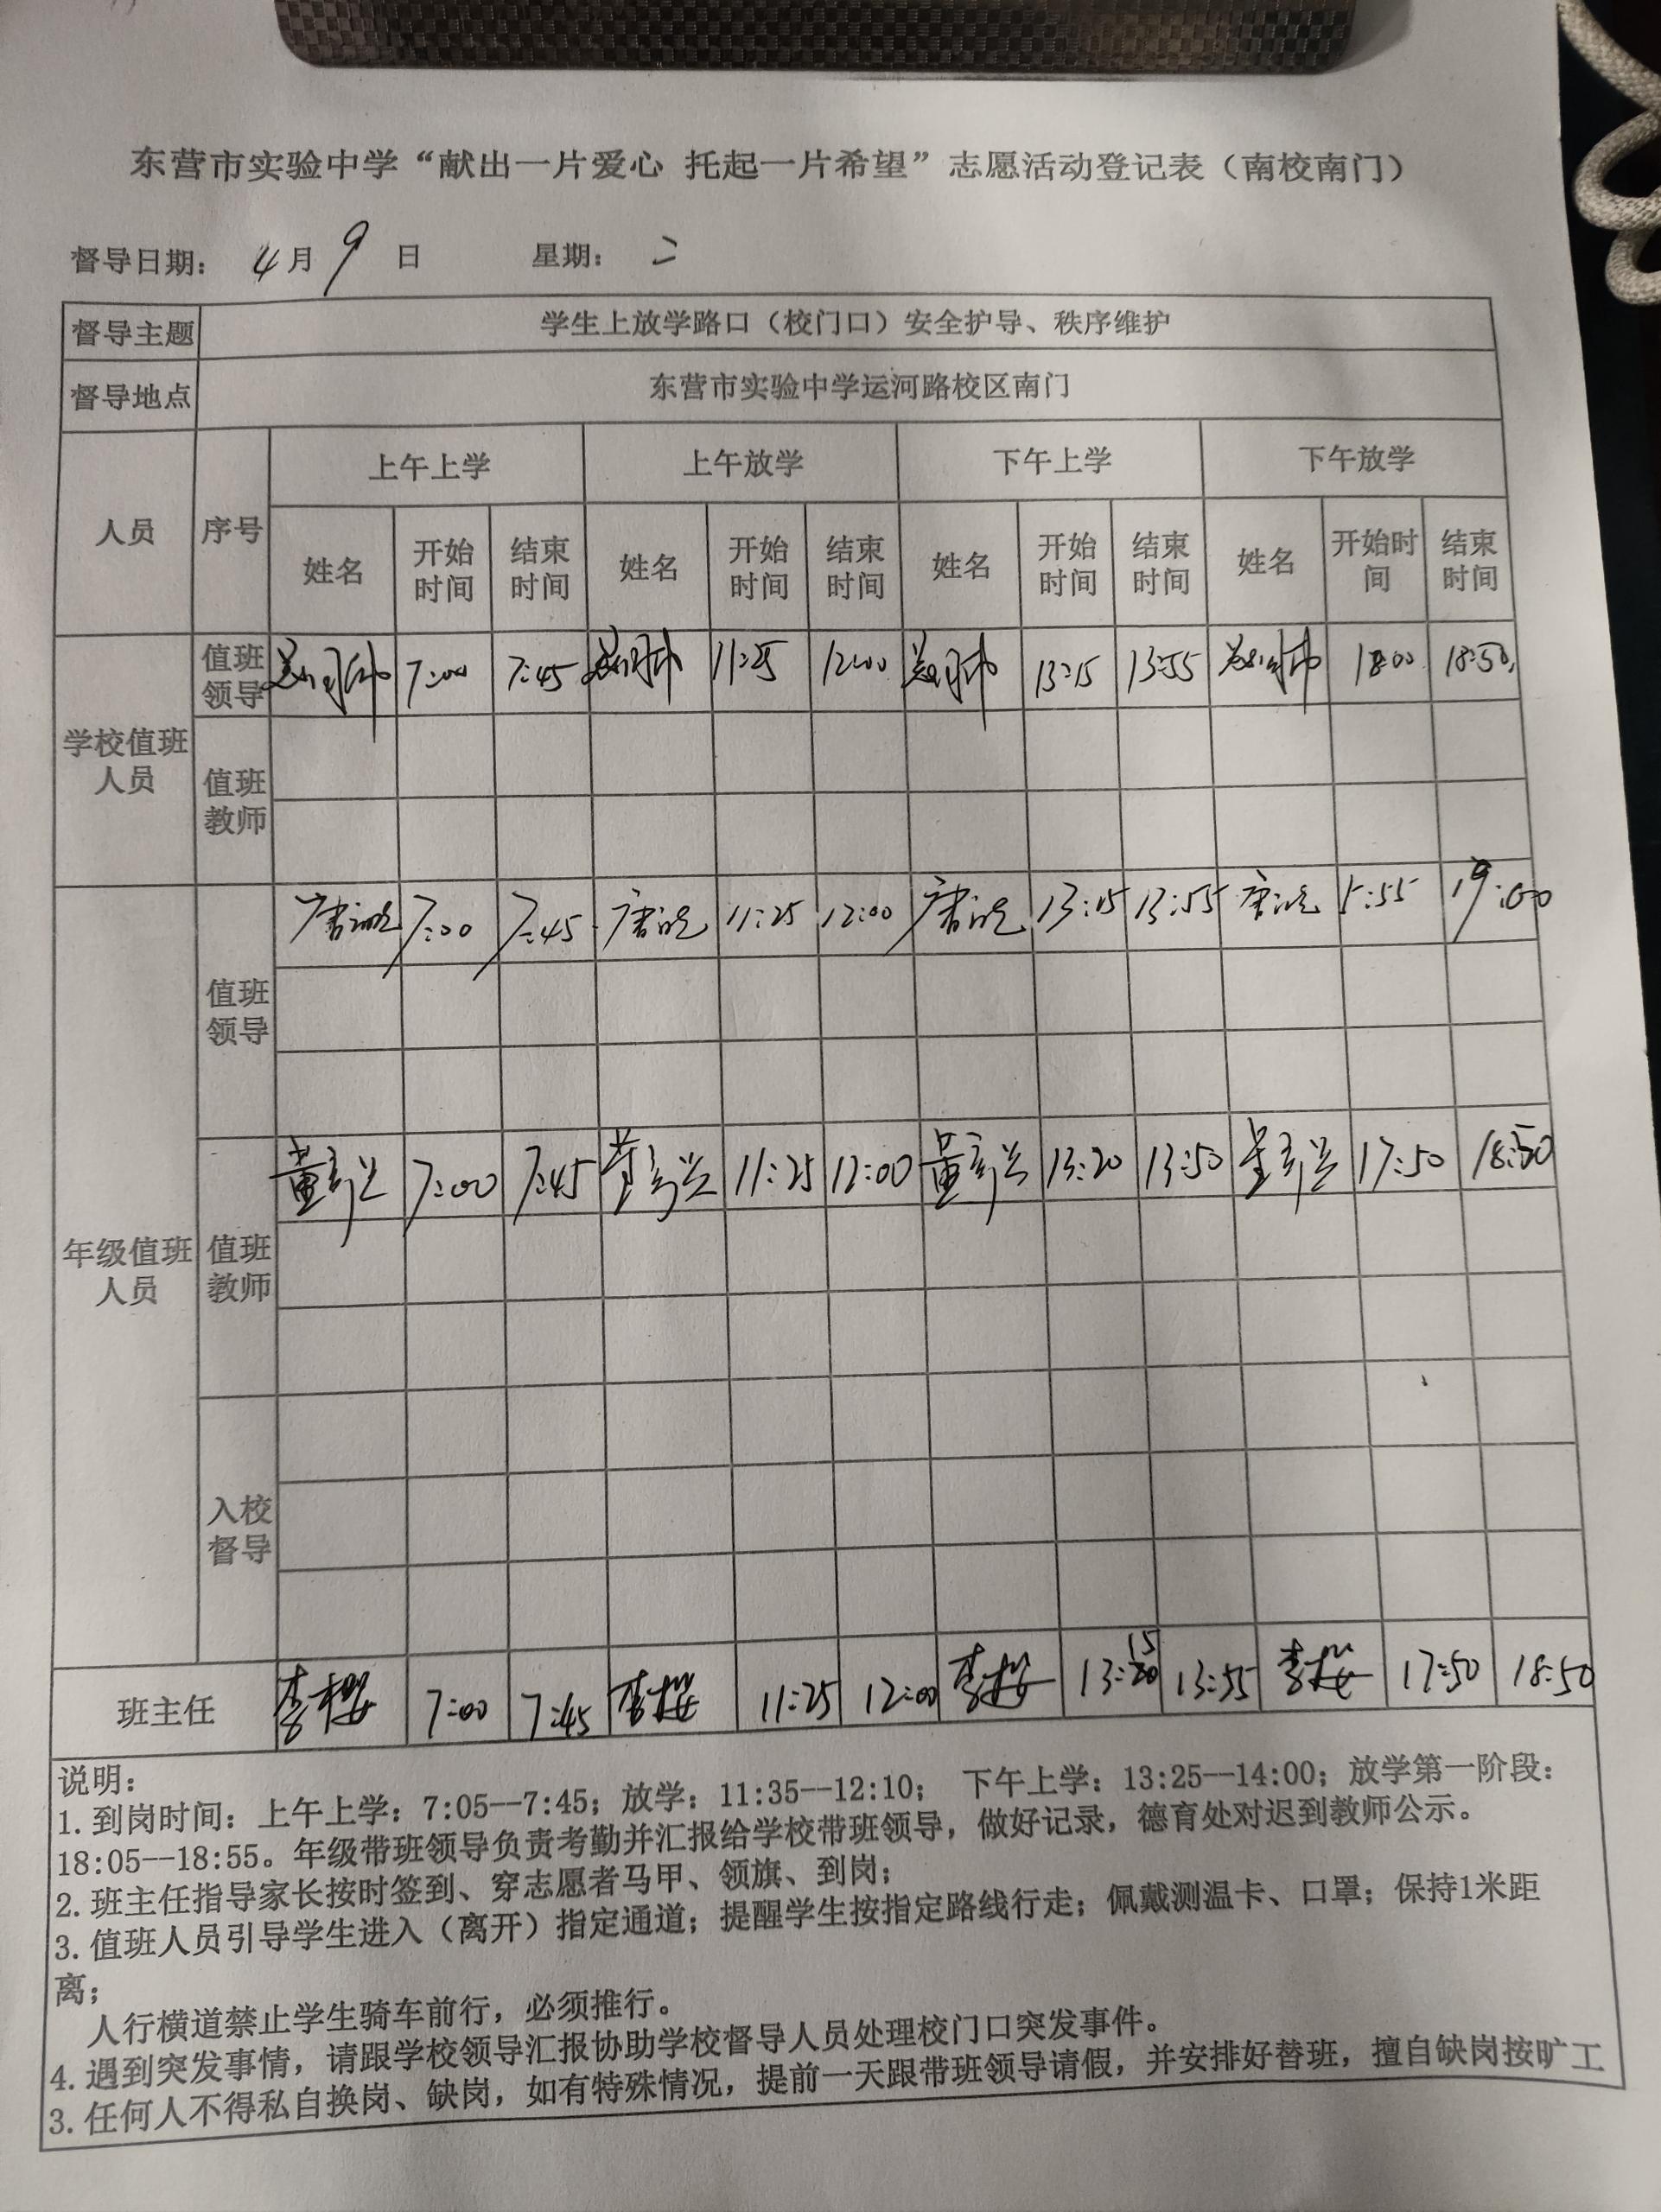 东营市实验中学“献出一片爱心 托起一片希望”志愿活动登记表（南校南门）
督导日期： 4月9日 星期：二
督导主题 学生上放学路口（校门口）安全护导、秩序维护
督导地点 东营市实验中学运河路校区南门
人员 序号 上午上学 上午放学 下午上学 下午放学
姓名 开始时间 结束时间 姓名 开始时间 结束时间 姓名 开始时间 结束时间 姓名 开始时间 结束时间
学校值班人员
值班领导 7:00 7:45 11:25 12:00 13:15 13:55 18:00 18:50
值班教师
年级值班人员
值班领导 7:00 7:45 11:25 12:00 13:15 13:55 19:00
值班教师 7:00 7:45 11:25 12:00 13:20 13:50 17:50 18:50
入校督导
班主任 李樱 7:00 7:45 李樱 11:25 12:00 李樱 13:15 13:55 李樱 17:50 18:50
说明：
1.到岗时间：上午上学：7:05--7:45；放学：11:35--12:10； 下午上学：13:25--14:00；放学第一阶段：
18:05--18:55。年级带班领导负责考勤并汇报给学校带班领导，做好记录，德育处对迟到教师公示。
2.班主任指导家长按时签到、穿志愿者马甲、领旗、到岗；
3.值班人员引导学生进入（离开）指定通道；提醒学生按指定路线行走；佩戴测温卡、口罩；保持1米距
离；
人行横道禁止学生骑车前行，必须推行。
4.遇到突发事情，请跟学校领导汇报协助学校督导人员处理校门口突发事件。
3.任何人不得私自换岗、缺岗，如有特殊情况，提前一天跟带班领导请假，并安排好替班，擅自缺岗按旷工